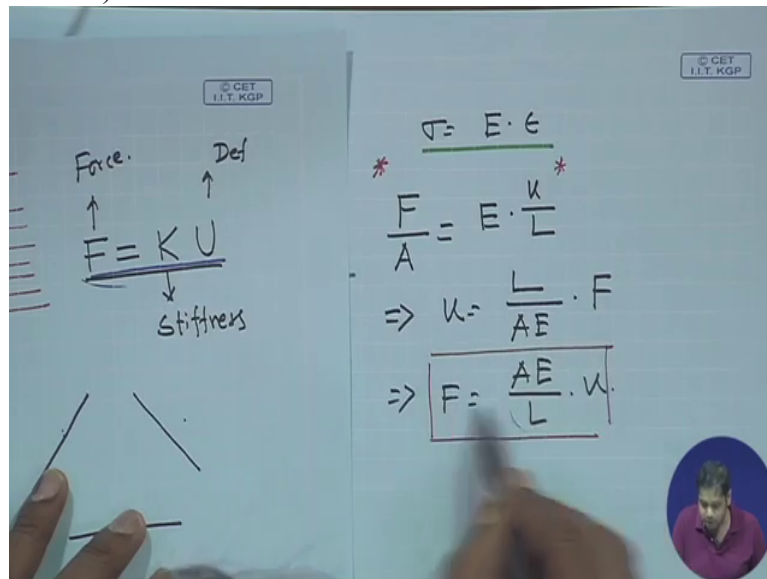 © CET
I.I.T. KGP
Force.
Def
F = K U
Stiffness
© CET
I.I.T. KGP
σ = E · ε
* F/A = E · u/L *
⇒ u = L/AE · F
⇒ F = AE/L · u.